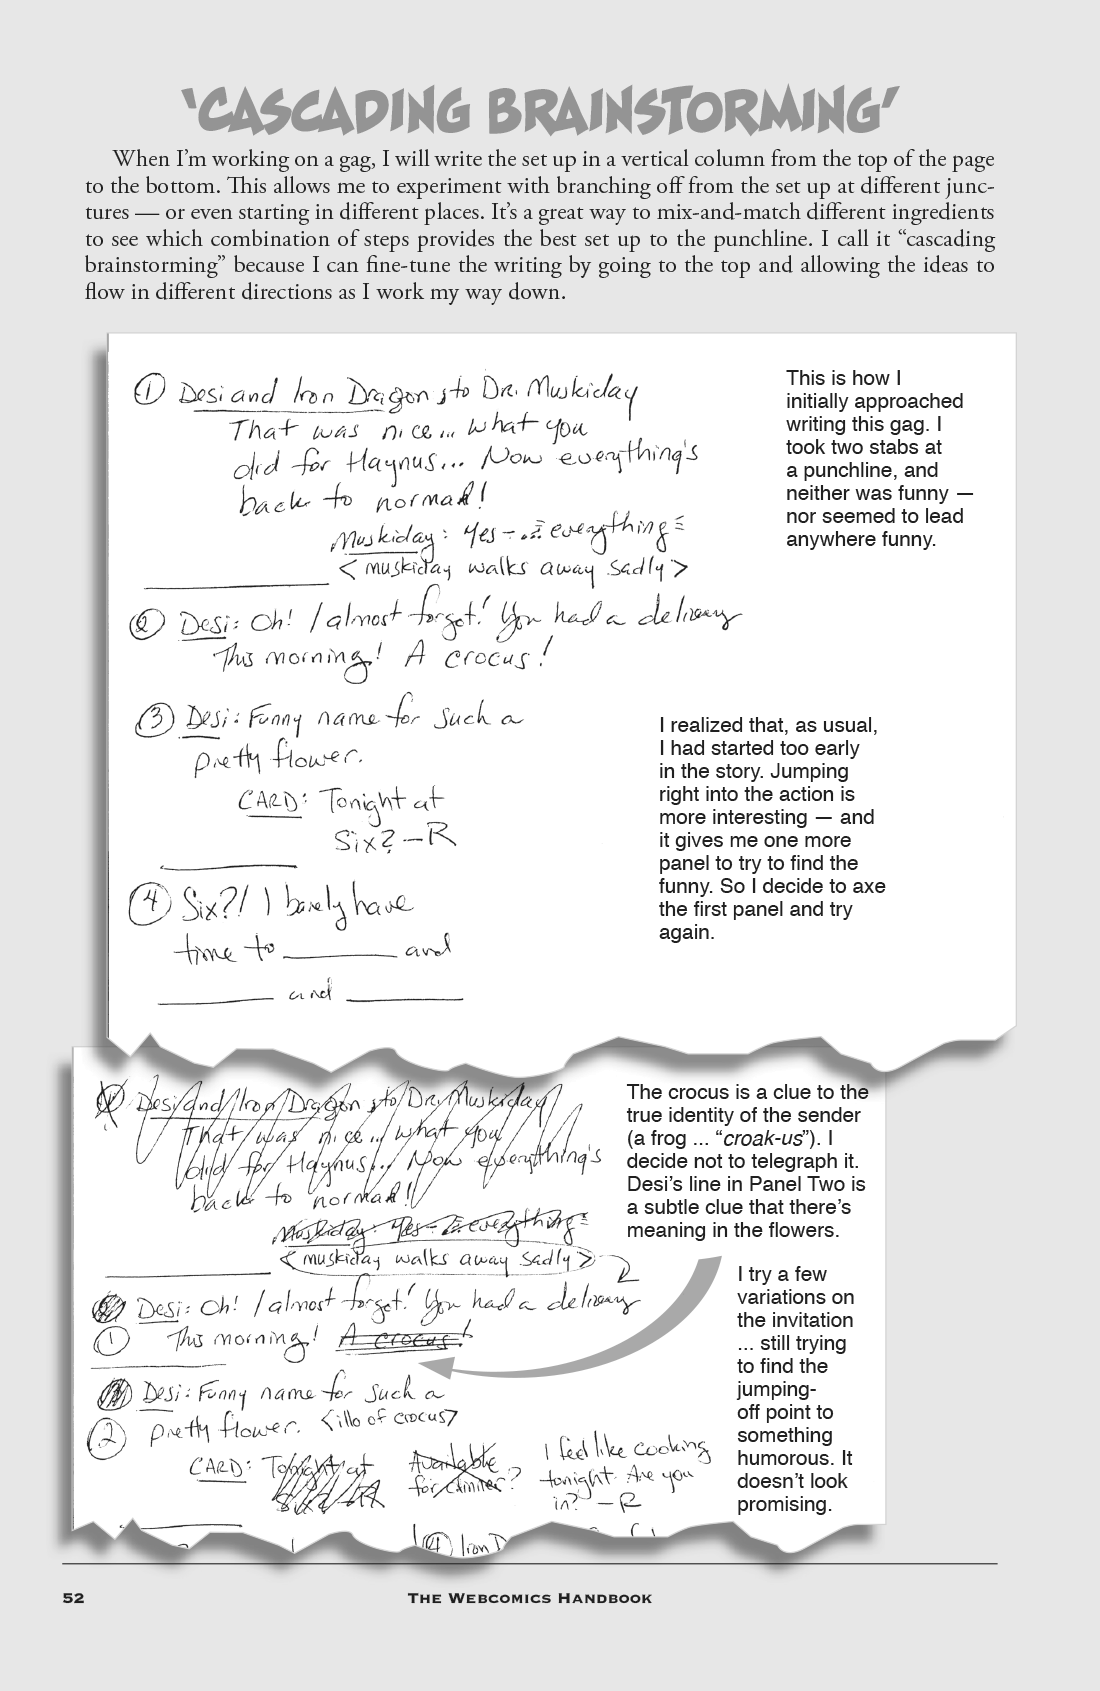 ‘CASCADING BRAINSTORMING’
When I’m working on a gag, I will write the set up in a vertical column from the top of the page
to the bottom. This allows me to experiment with branching off from the set up at different junc-
tures — or even starting in different places. It’s a great way to mix-and-match different ingredients
to see which combination of steps provides the best set up to the punchline. I call it “cascading
brainstorming” because I can fine-tune the writing by going to the top and allowing the ideas to
flow in different directions as I work my way down.
① Desi and Iron Dragon, to Dr. Muskiday
That was nice... what you
did for Haynus... Now everything's
back to normal!
Muskiday: Yes - ... everything
< muskiday walks away sadly >
This is how I
initially approached
writing this gag. I
took two stabs at
a punchline, and
neither was funny —
nor seemed to lead
anywhere funny.
② Desi: Oh! I almost forgot! You had a delivery
This morning! A crocus!
③ Desi: Funny name for such a
pretty flower.
CARD: Tonight at
Six? - R
④ Six?! I barely have
time to ________ and
________ and ________
I realized that, as usual,
I had started too early
in the story. Jumping
right into the action is
more interesting — and
it gives me one more
panel to try to find the
funny. So I decide to axe
the first panel and try
again.
① Desi and Iron Dragon, to Dr. Muskiday
That was nice... what you
did for Haynus... Now everything's
back to normal!
Muskiday: Yes - ... everything
< muskiday walks away sadly >
② Desi: Oh! I almost forgot! You had a delivery
① This morning! A crocus!
③ Desi: Funny name for such a
② pretty flower. <illo of crocus>
CARD: Tonight at
Six? - R
Available
for dinner?
I feel like cooking
tonight. Are you
in? - R
④ Iron D
The crocus is a clue to the
true identity of the sender
(a frog ... “croak-us”). I
decide not to telegraph it.
Desi’s line in Panel Two is
a subtle clue that there’s
meaning in the flowers.
I try a few
variations on
the invitation
... still trying
to find the
jumping-
off point to
something
humorous. It
doesn’t look
promising.
52
THE WEBCOMICS HANDBOOK